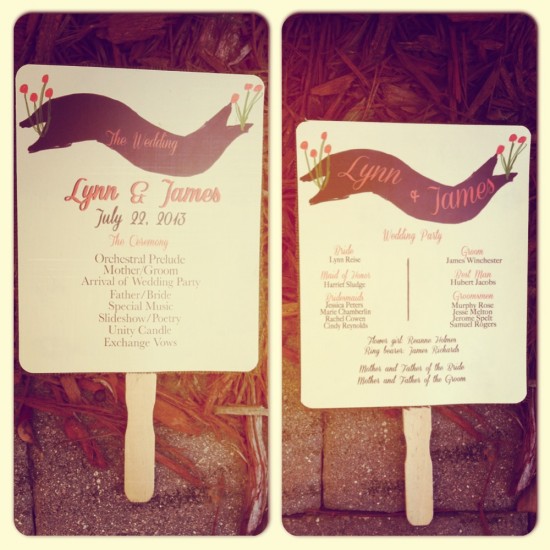 The Wedding
Lynn & James
July 22, 2013
The Ceremony
Orchestral Prelude
Mother/Groom
Arrival of Wedding Party
Father/Bride
Special Music
Slideshow/Poetry
Unity Candle
Exchange Vows
Lynn & James
Wedding Party
Bride
Lynn Reise
Maid of Honor
Harriet Sludge
Bridesmaids
Jessica Peters
Marie Chamberlin
Rachel Cowen
Cindy Reynolds
Groom
James Winchester
Best Man
Hubert Jacobs
Groomsmen
Murphy Rose
Jesse Melton
Jerome Spelt
Samuel Rogers
Flower girl: Roxanne Holmer
Ring bearer: James Richards
Mother and Father of the Bride
Mother and Father of the Groom